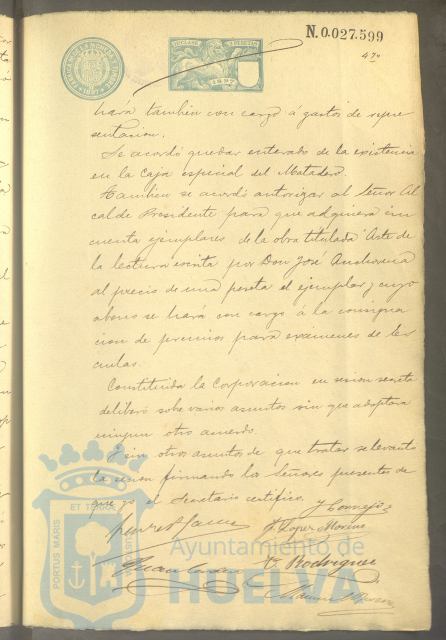 N.0.027.599
1897
hará tambien con cargo á gastos de repre
sentacion.
Se acordó quedar enterado de la existencia
en la Caja especial del Matadero.
Tambien se acordó autorizar al Señor Al
calde Presidente para que adquiera cin
cuenta ejemplares de la obra titulada Arte de
la lectura escrita por Don José
al precio de una peseta el ejemplar, y cuyo
abono se hará con cargo á la consigna
cion de premios para exámenes de Es
cuelas.
Constituida la Corporacion en sesion secreta
deliberó sobre varios asuntos sin que adoptara
ningun otro acuerdo.
Y sin otros asuntos de que tratar se levantó
la sesion firmando los Señores presentes de
que yo el Secretario certifico.
Lopez Moreno
Rodriguez
Manuel
PORTUS MARIS
ET TERRAE
Ayuntamiento de
HUELVA